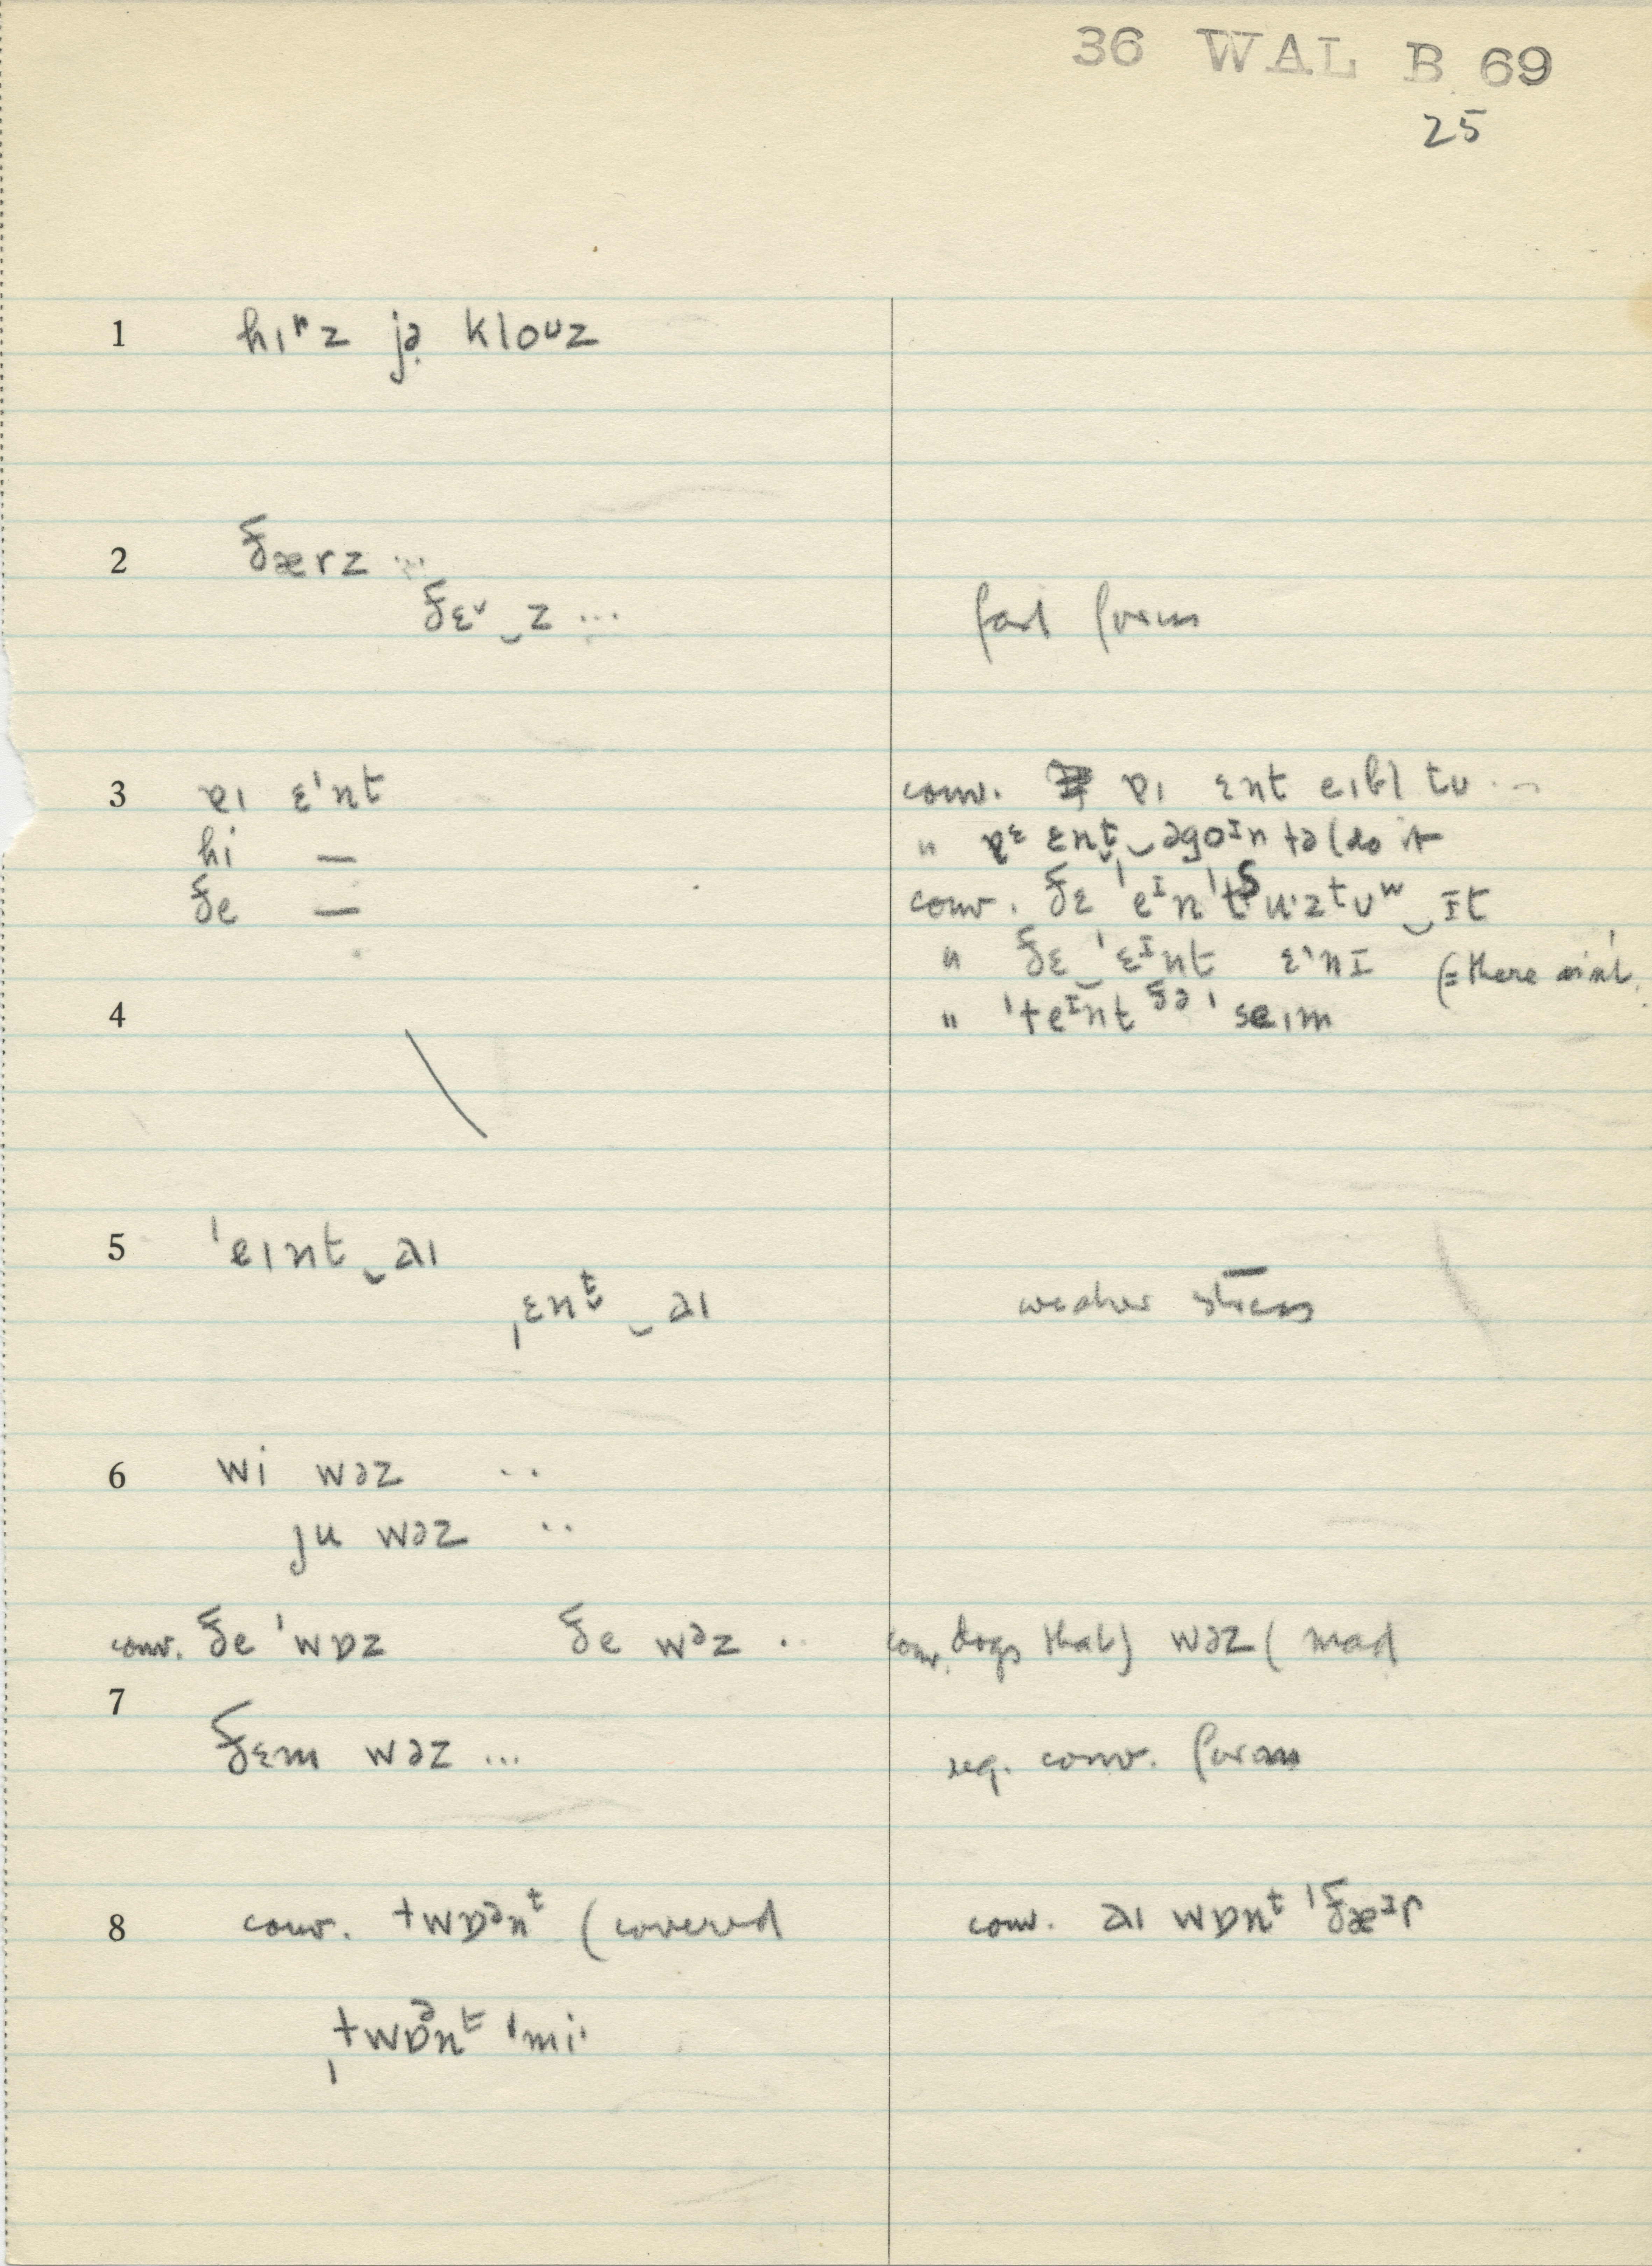 36 WAL B 69
25
1 hɪʳz jə̣ kloᴜz
2 ðærz ...
ðɛᵛ‿z ... fast form
3 ɐɪ ɛˈnt conv. ɐɪ ɛnt eɪbl tʊ ...
hi — " ɐᵋ ɛnt̬‿əgoɪn tə (do it
ðe — conv. ðɛ ˈeᴵnˈtᶴuˑzᵗʊʷ‿ɪt
" ðɛ‿ˈɛᴵnt ɛˈnɪ (= there ain't
4 " ˈteᴵnt ðə ˈseɪm
5 ˈeɪnt‿aɪ
ˌɛnt̬‿aɪ weaker stress
6 wi wəz ..
ju wəz ..
conv. ðe ˈwɒz ðe wəz .. conv. dogs that) wəz ( mad
7
ðɛm wəz ... reg. conv. form
8 conv. twɒᵊnᵗ (covered conv. aɪ wɒnᵗ ˈðæᵊr
ˌtwɒᵊnᵗ ˈmiˑ